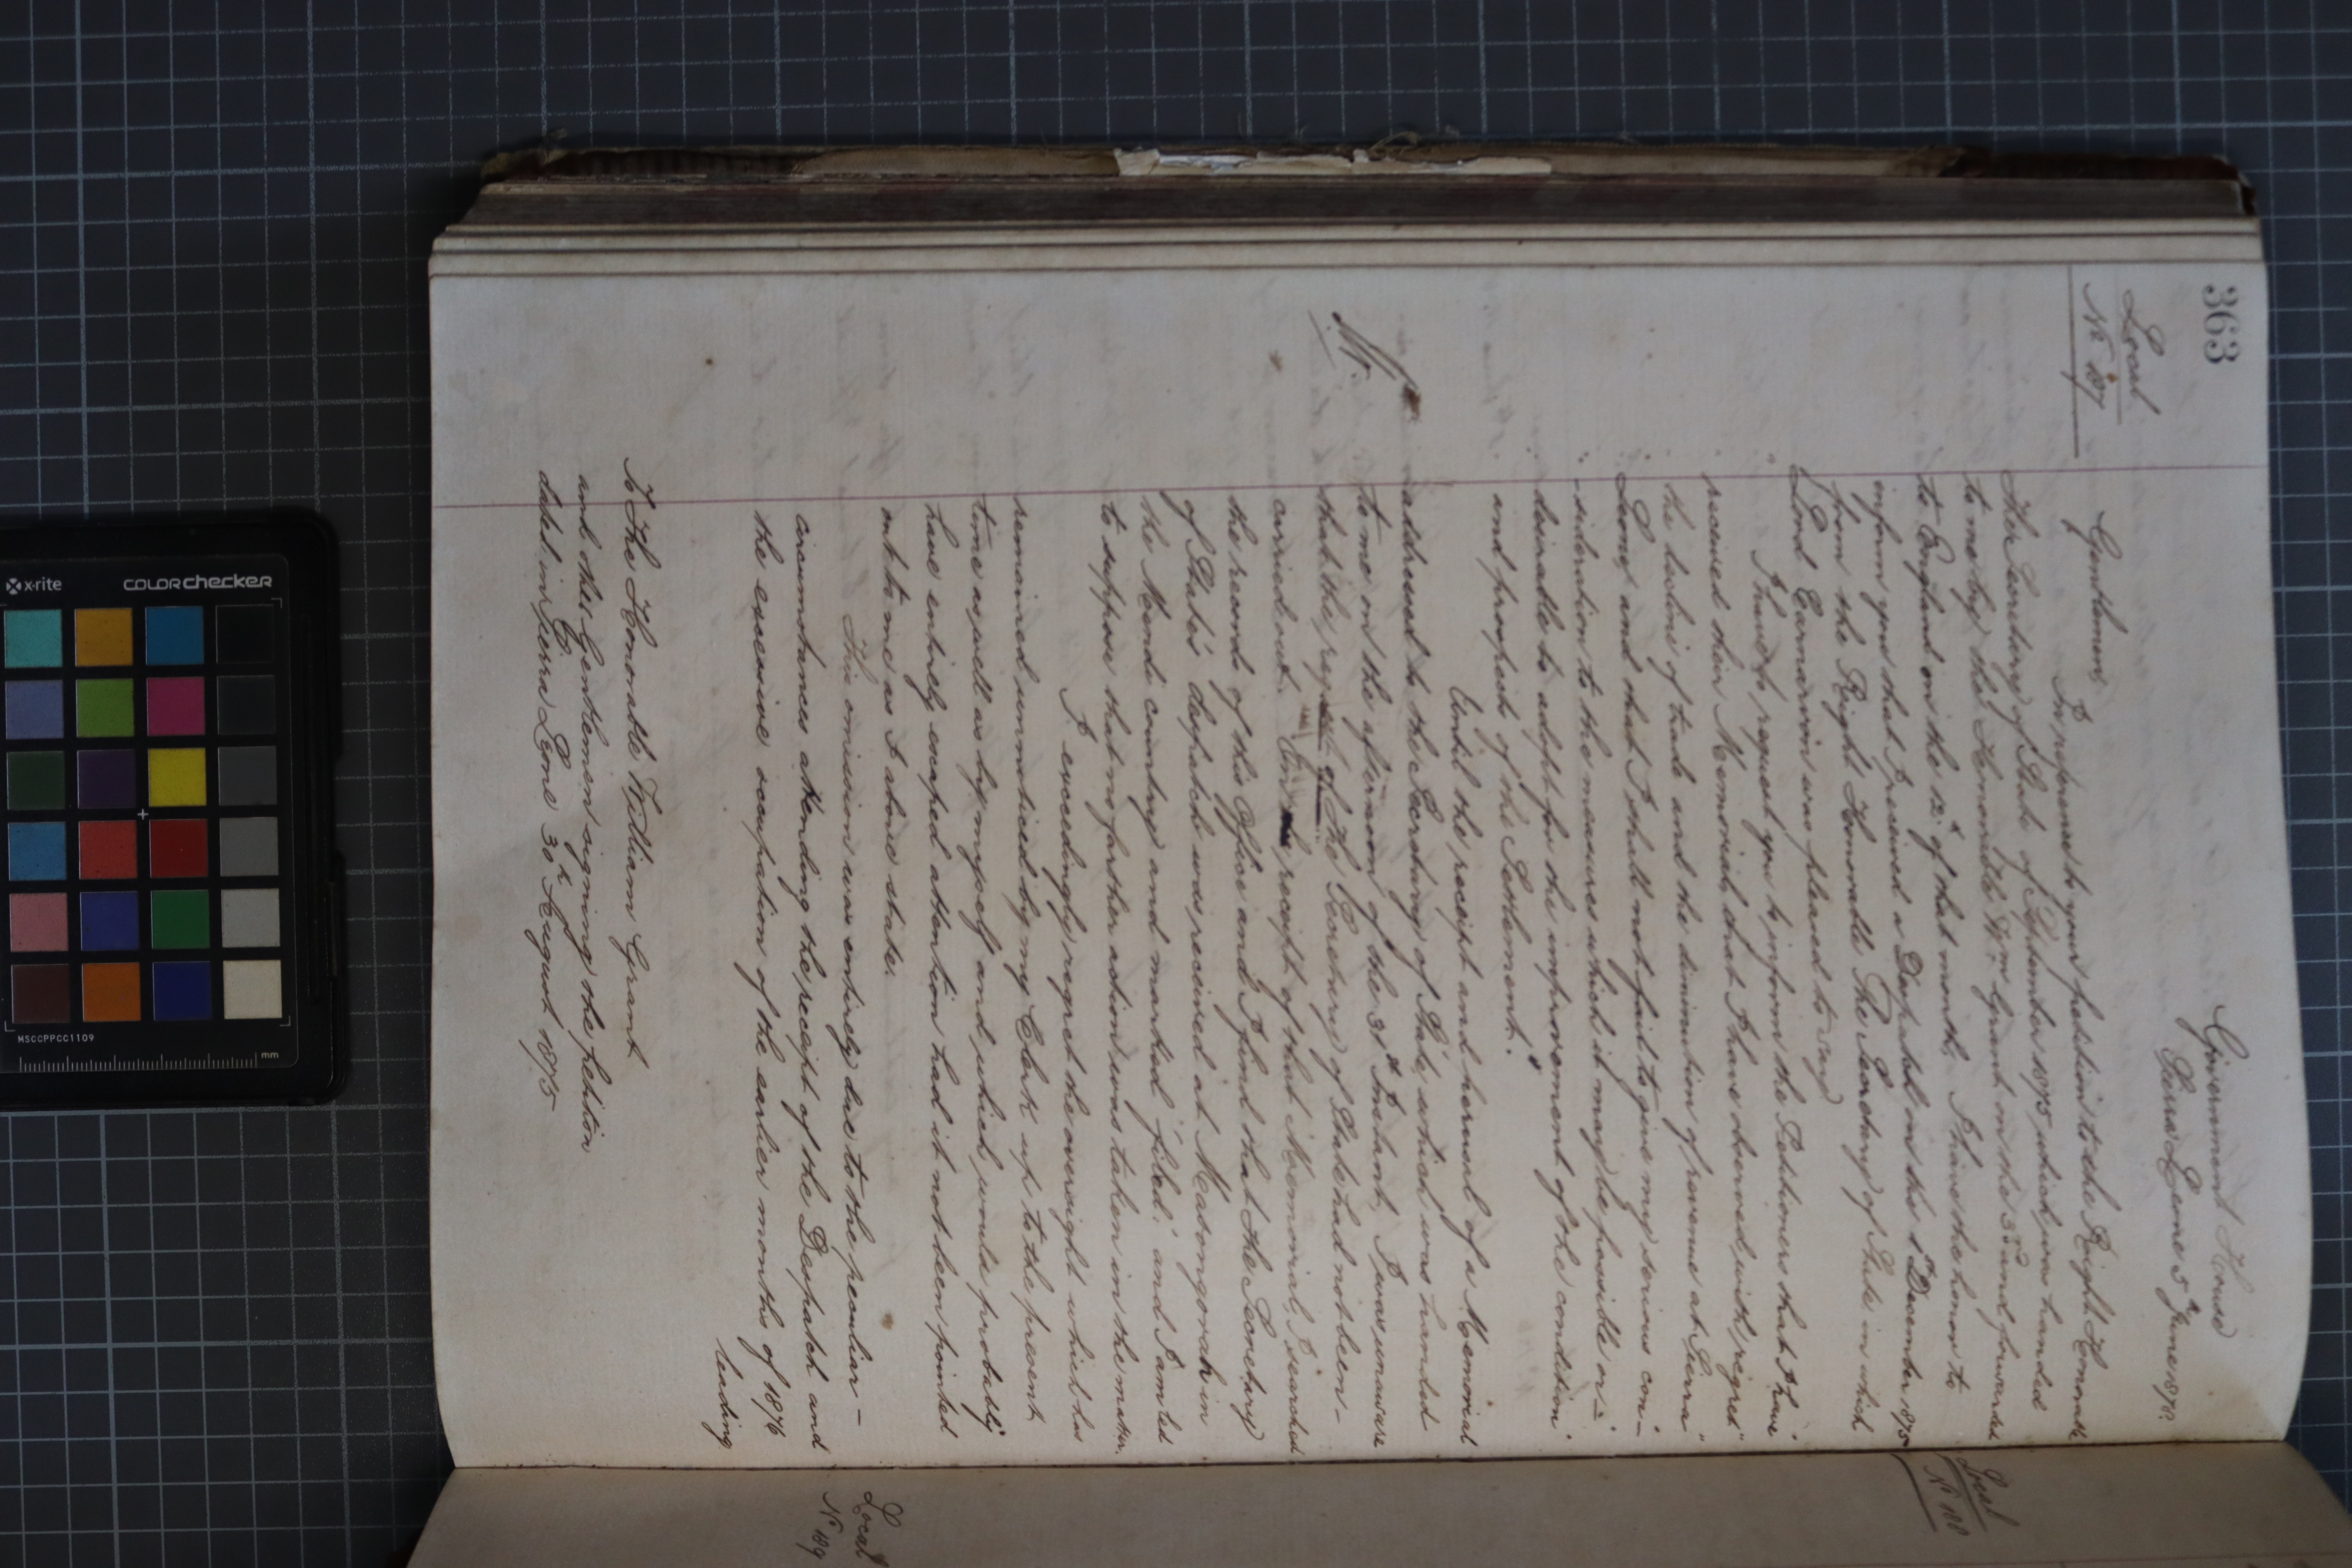 363
Local
No 187
Government House
Sierra Leone 5th June 1876.
Gentlemen
In reference to your petition to the Right Honorable
the Secretary of State of September 1875 which was handed
to me by the Honorable Wm Grant on the 3rd and forwarded
to England on the 12th of that month, I have the honor to
inform you that I received a Despatch on the 1st December 1875
from the Right Honorable The Secretary of State in which
Lord Carnarvon was pleased to say
"I have to request you to inform the Petitioners that I have
received their Memorial, that I have observed with regret
the decline of trade and the diminution of revenue at Sierra
Leone, and that I shall not fail to give my serious con-
sideration to the measures which it may be possible or
desirable to adopt for the improvement of the condition
and prospects of the Settlement."
Until the receipt and perusal of a Memorial
addressed to the Secretary of State, which was handed
to me on the afternoon of the 3rd Instant, I was unaware
that the request of the Secretary of State had not been
carried out. On receipt of that Memorial, I searched
the records of this Office and I find that the Secretary
of State's despatch was received at Matongorah in
the Mendi country and marked "filed," and I am led
to suppose that no further action was taken in the matter.
I exceedingly regret the oversight which has
remained unnoticed by my Clerk up to the present
time as well as by myself and which would probably
have entirely escaped attention had it not been pointed
out to me as I above state.
This omission was entirely due to the peculiar
circumstances attending the receipt of the Despatch and
the excessive occupation of the earlier months of 1876
leading
To The Honorable William Grant
and other Gentlemen signing the petition
dated in Sierra Leone 30th August 1875
Local
No 188
Local
No 189
x·rite
colorchecker
MSCCPPCC1109
mm